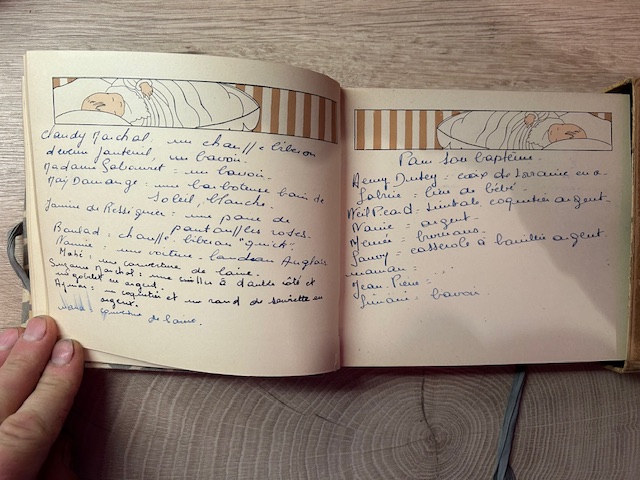 Claudy Marchal, un chauffe biberon
devenu fauteuil, un bavoir.
Madame Gabouret = un bavoir.
Maÿ Damange = une barboteuse bain de
soleil, blanche.
Janine de Rességuier = une paire de
pantouffles roses.
Boulad, chauffe biberon "quick".
Mamie = une voiture landeau Anglais
Mahé = un couverture de laine.
Suzanne Marchal = une cuillère à double côté et
un gobelet en argent.
un coquetier et un rond de serviette en
argent.
couverture de laine.
Pour son baptême.
Henry Dubey = croix de Lorraine en o-
Sabine = livre de bébé-
Weil Picard = timbale, coquetier argent-
Marie = argent-
= casserole à bouillie argent
maman = ....
Jean. Pierre =
bavoir